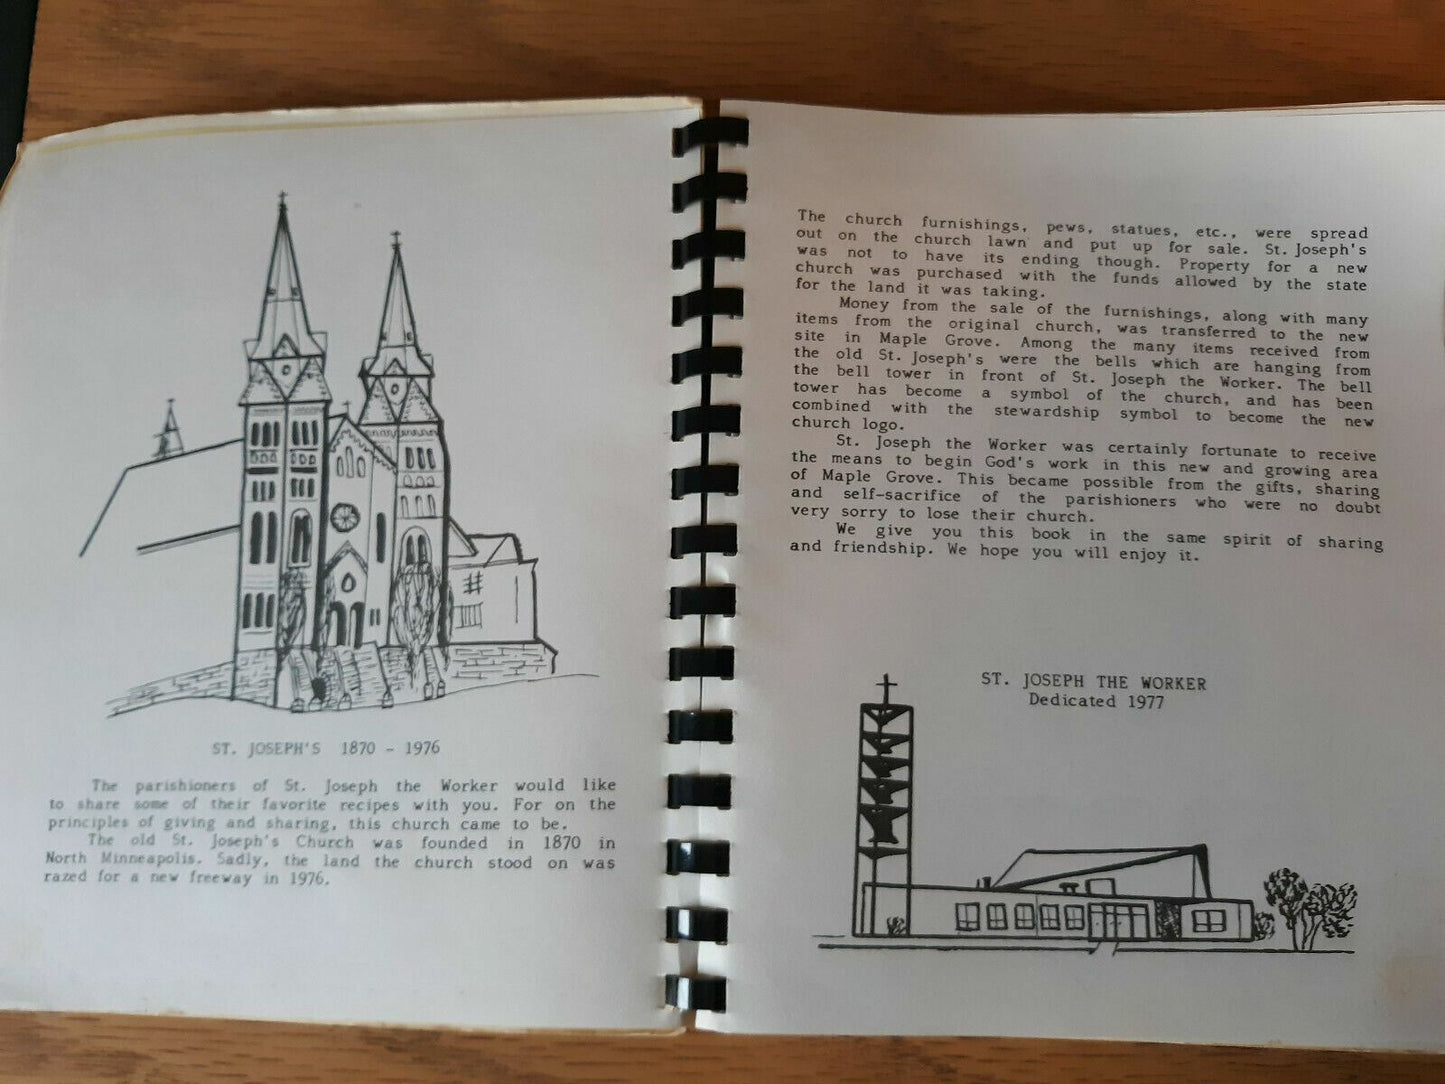 ST. JOSEPH'S 1870 - 1976
The parishioners of St. Joseph the Worker would like
to share some of their favorite recipes with you. For on the
principles of giving and sharing, this church came to be.
The old St. Joseph's Church was founded in 1870 in
North Minneapolis. Sadly, the land the church stood on was
razed for a new freeway in 1976.
The church furnishings, pews, statues, etc., were spread
out on the church lawn and put up for sale. St. Joseph's
was not to have its ending though. Property for a new
church was purchased with the funds allowed by the state
for the land it was taking.
Money from the sale of the furnishings, along with many
items from the original church, was transferred to the new
site in Maple Grove. Among the many items received from
the old St. Joseph's were the bells which are hanging from
the bell tower in front of St. Joseph the Worker. The bell
tower has become a symbol of the church, and has been
combined with the stewardship symbol to become the new
church logo.
St. Joseph the Worker was certainly fortunate to receive
the means to begin God's work in this new and growing area
of Maple Grove. This became possible from the gifts, sharing
and self-sacrifice of the parishioners who were no doubt
very sorry to lose their church.
We give you this book in the same spirit of sharing
and friendship. We hope you will enjoy it.
ST. JOSEPH THE WORKER
Dedicated 1977